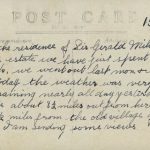 POST CARD
the residence of Sir Gerald
estate we have just spent
we went out last
today the weather was very
raining nearly all day
about 1½ miles out from
miles from the old village
I am sending some views